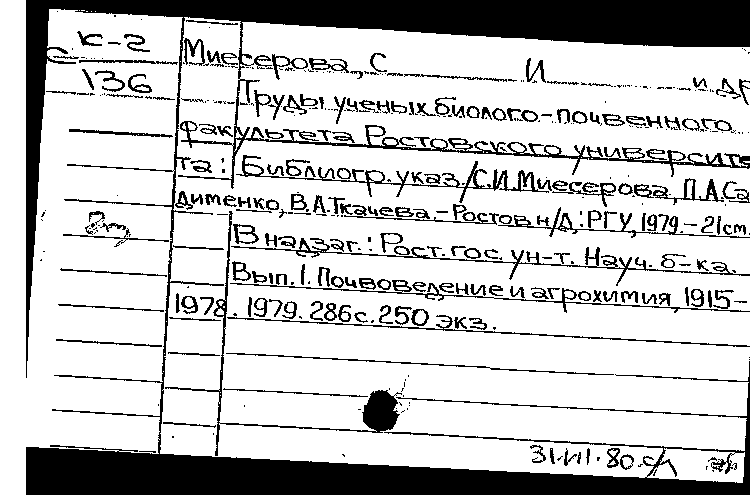 К-2
136
Миесерова, С И и др
Труды ученых биолого-почвенного
факультета Ростовского университе
та: Библиогр. указ/С.И. Миесерова, П.А. Са
дименко, В.А. Ткачева.-Ростов н/Д.: РГУ, 1979.-21см.
В надзаг.: Рост. гос. ун-т. Науч. б-ка.
Вып. 1. Почвоведение и агрохимия, 1915-
1978. 1979. 286с. 250 экз.
31.VII.80.